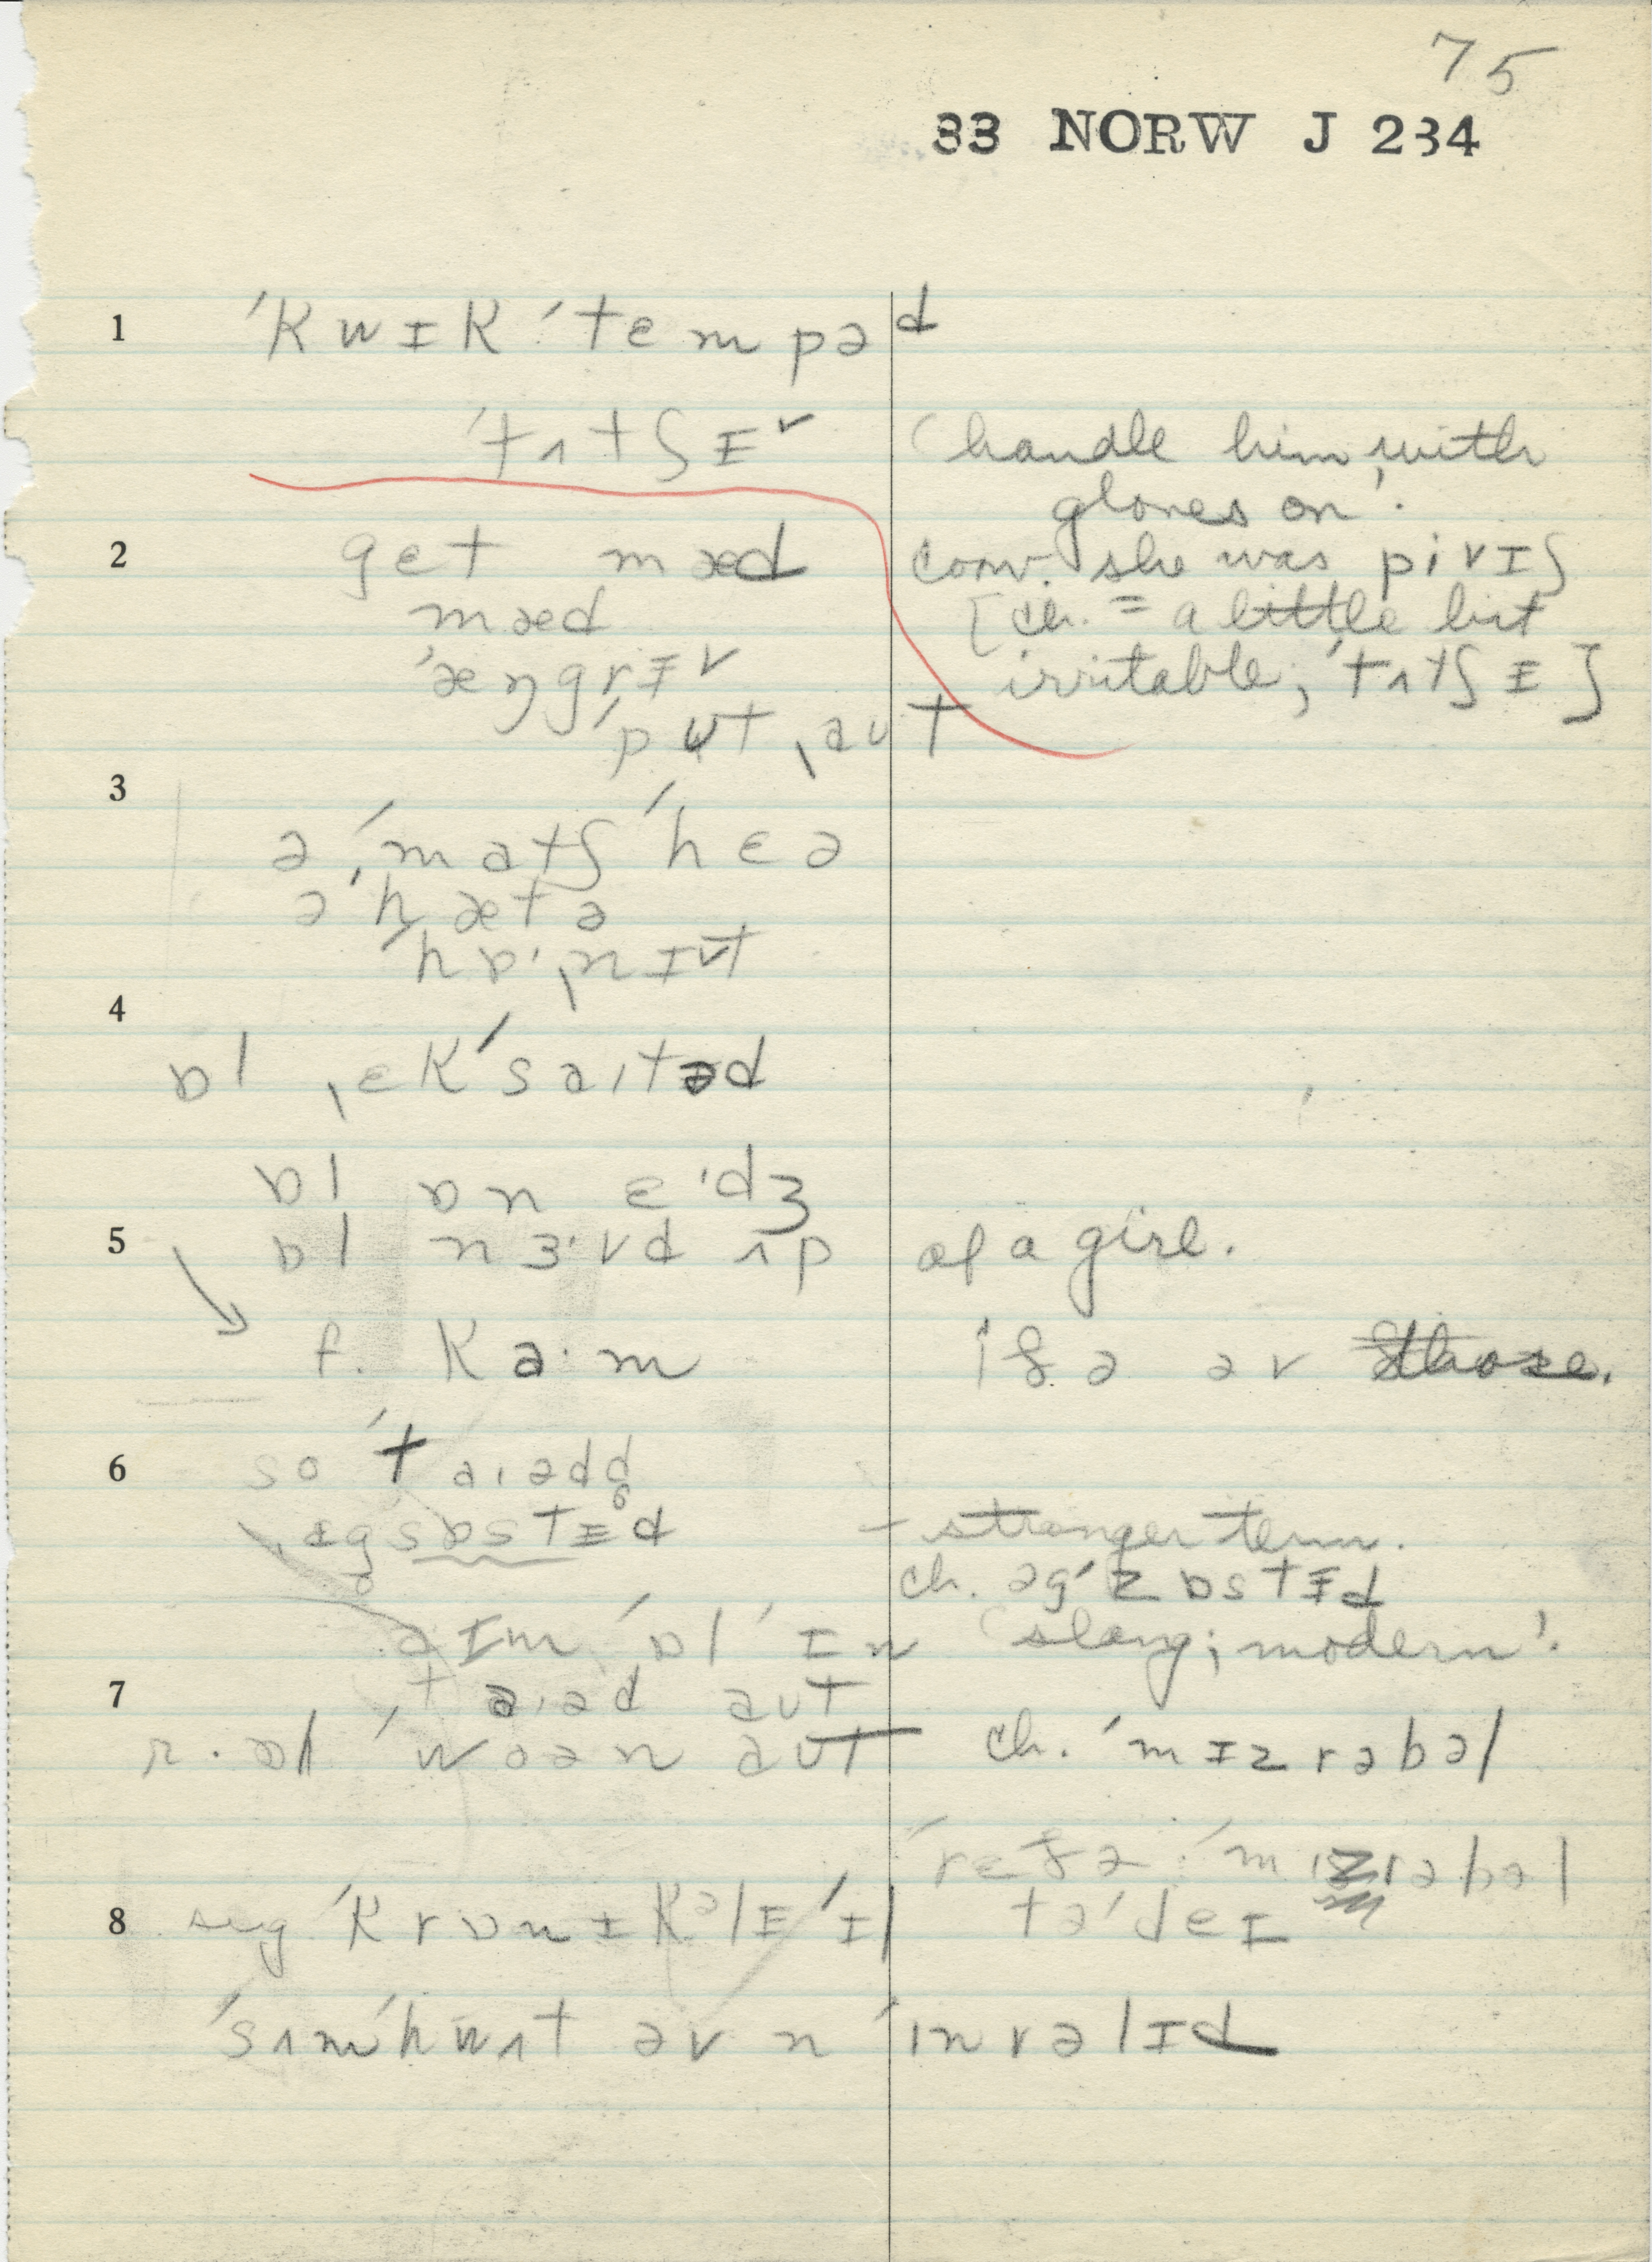 75
33 NORW J 234
1 ˈkwɪkˈtempəd
ˈtʌtʃɪ˅ 'handle him with
gloves on'.
2 get mæd conv. she was pivɪʃ
mæd [ch. = a little bit
ˈæŋgrɪ˅ irritable, ˈtʌtʃɪ]
ˈpʊt ˌaut
3
ə ˈˌmatʃ ˈhɛə
əˈhætə
ˈhɒˑˌnɪt
4
ɒl ˌɛkˈsaɪtəd
ɒl ɒn ɛˑdʒ
5 ɒl nɜˑvd ʌp of a girl.
f. kaˑm if ə əv those.
6 so ˈtaɪəd
ˌɪgsɒstɪd – stronger term.
ch. əgˈzɒstɪd
aɪm ˈɒl ˈɪn 'slang; modern'.
7 taɪəd aut
r. ɒl ˈwoən aut ch. ˈmɪzrəbəl
ˈrɛfə ˈmɪzrəbəl
8 sug ˈkrɒnɪkəlɪ ˈɪl təˈdeɪ
ˈsʌmˈhwʌt əv n ˈɪnvəlɪd